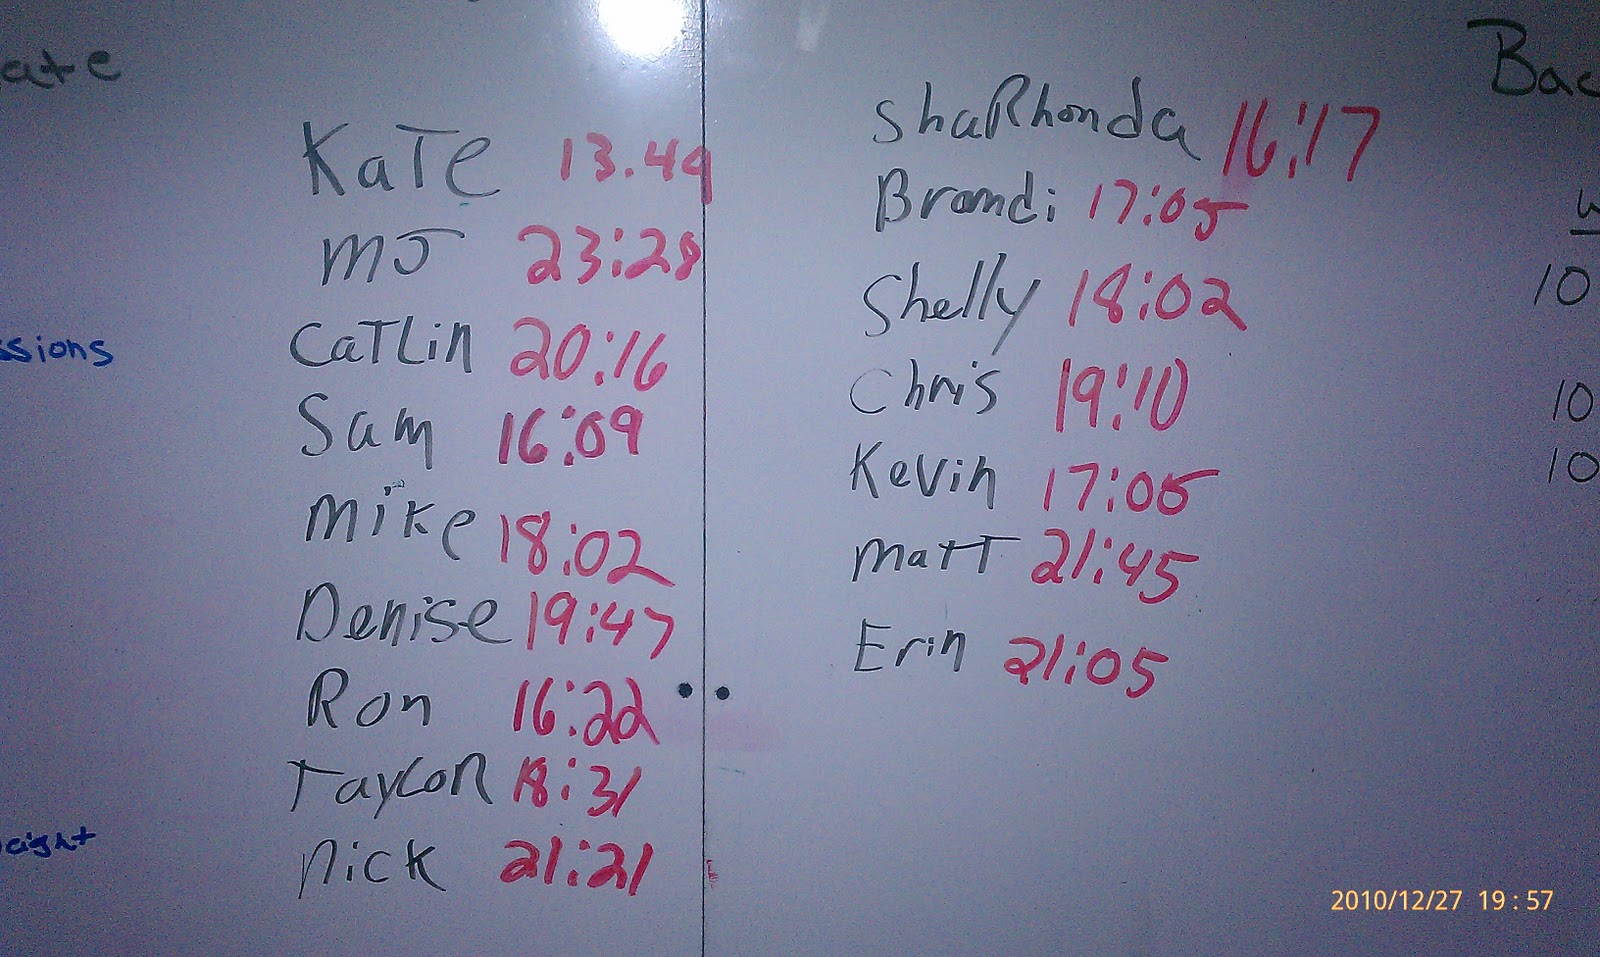 ate
KaTe 13.49
mJ 23:28
CaTLin 20:16
ssions
Sam 16:09
mike 18:02
Denise 19:47
Ron 16:22
TayLoR 18:31
nick 21:21
shaRhonda 16:17
Brandi 17:05
Shelly 18:02
Chris 19:10
Kevin 17:05
maTT 21:45
Erin 21:05
Bac
10
10
10
2010/12/27 19:57